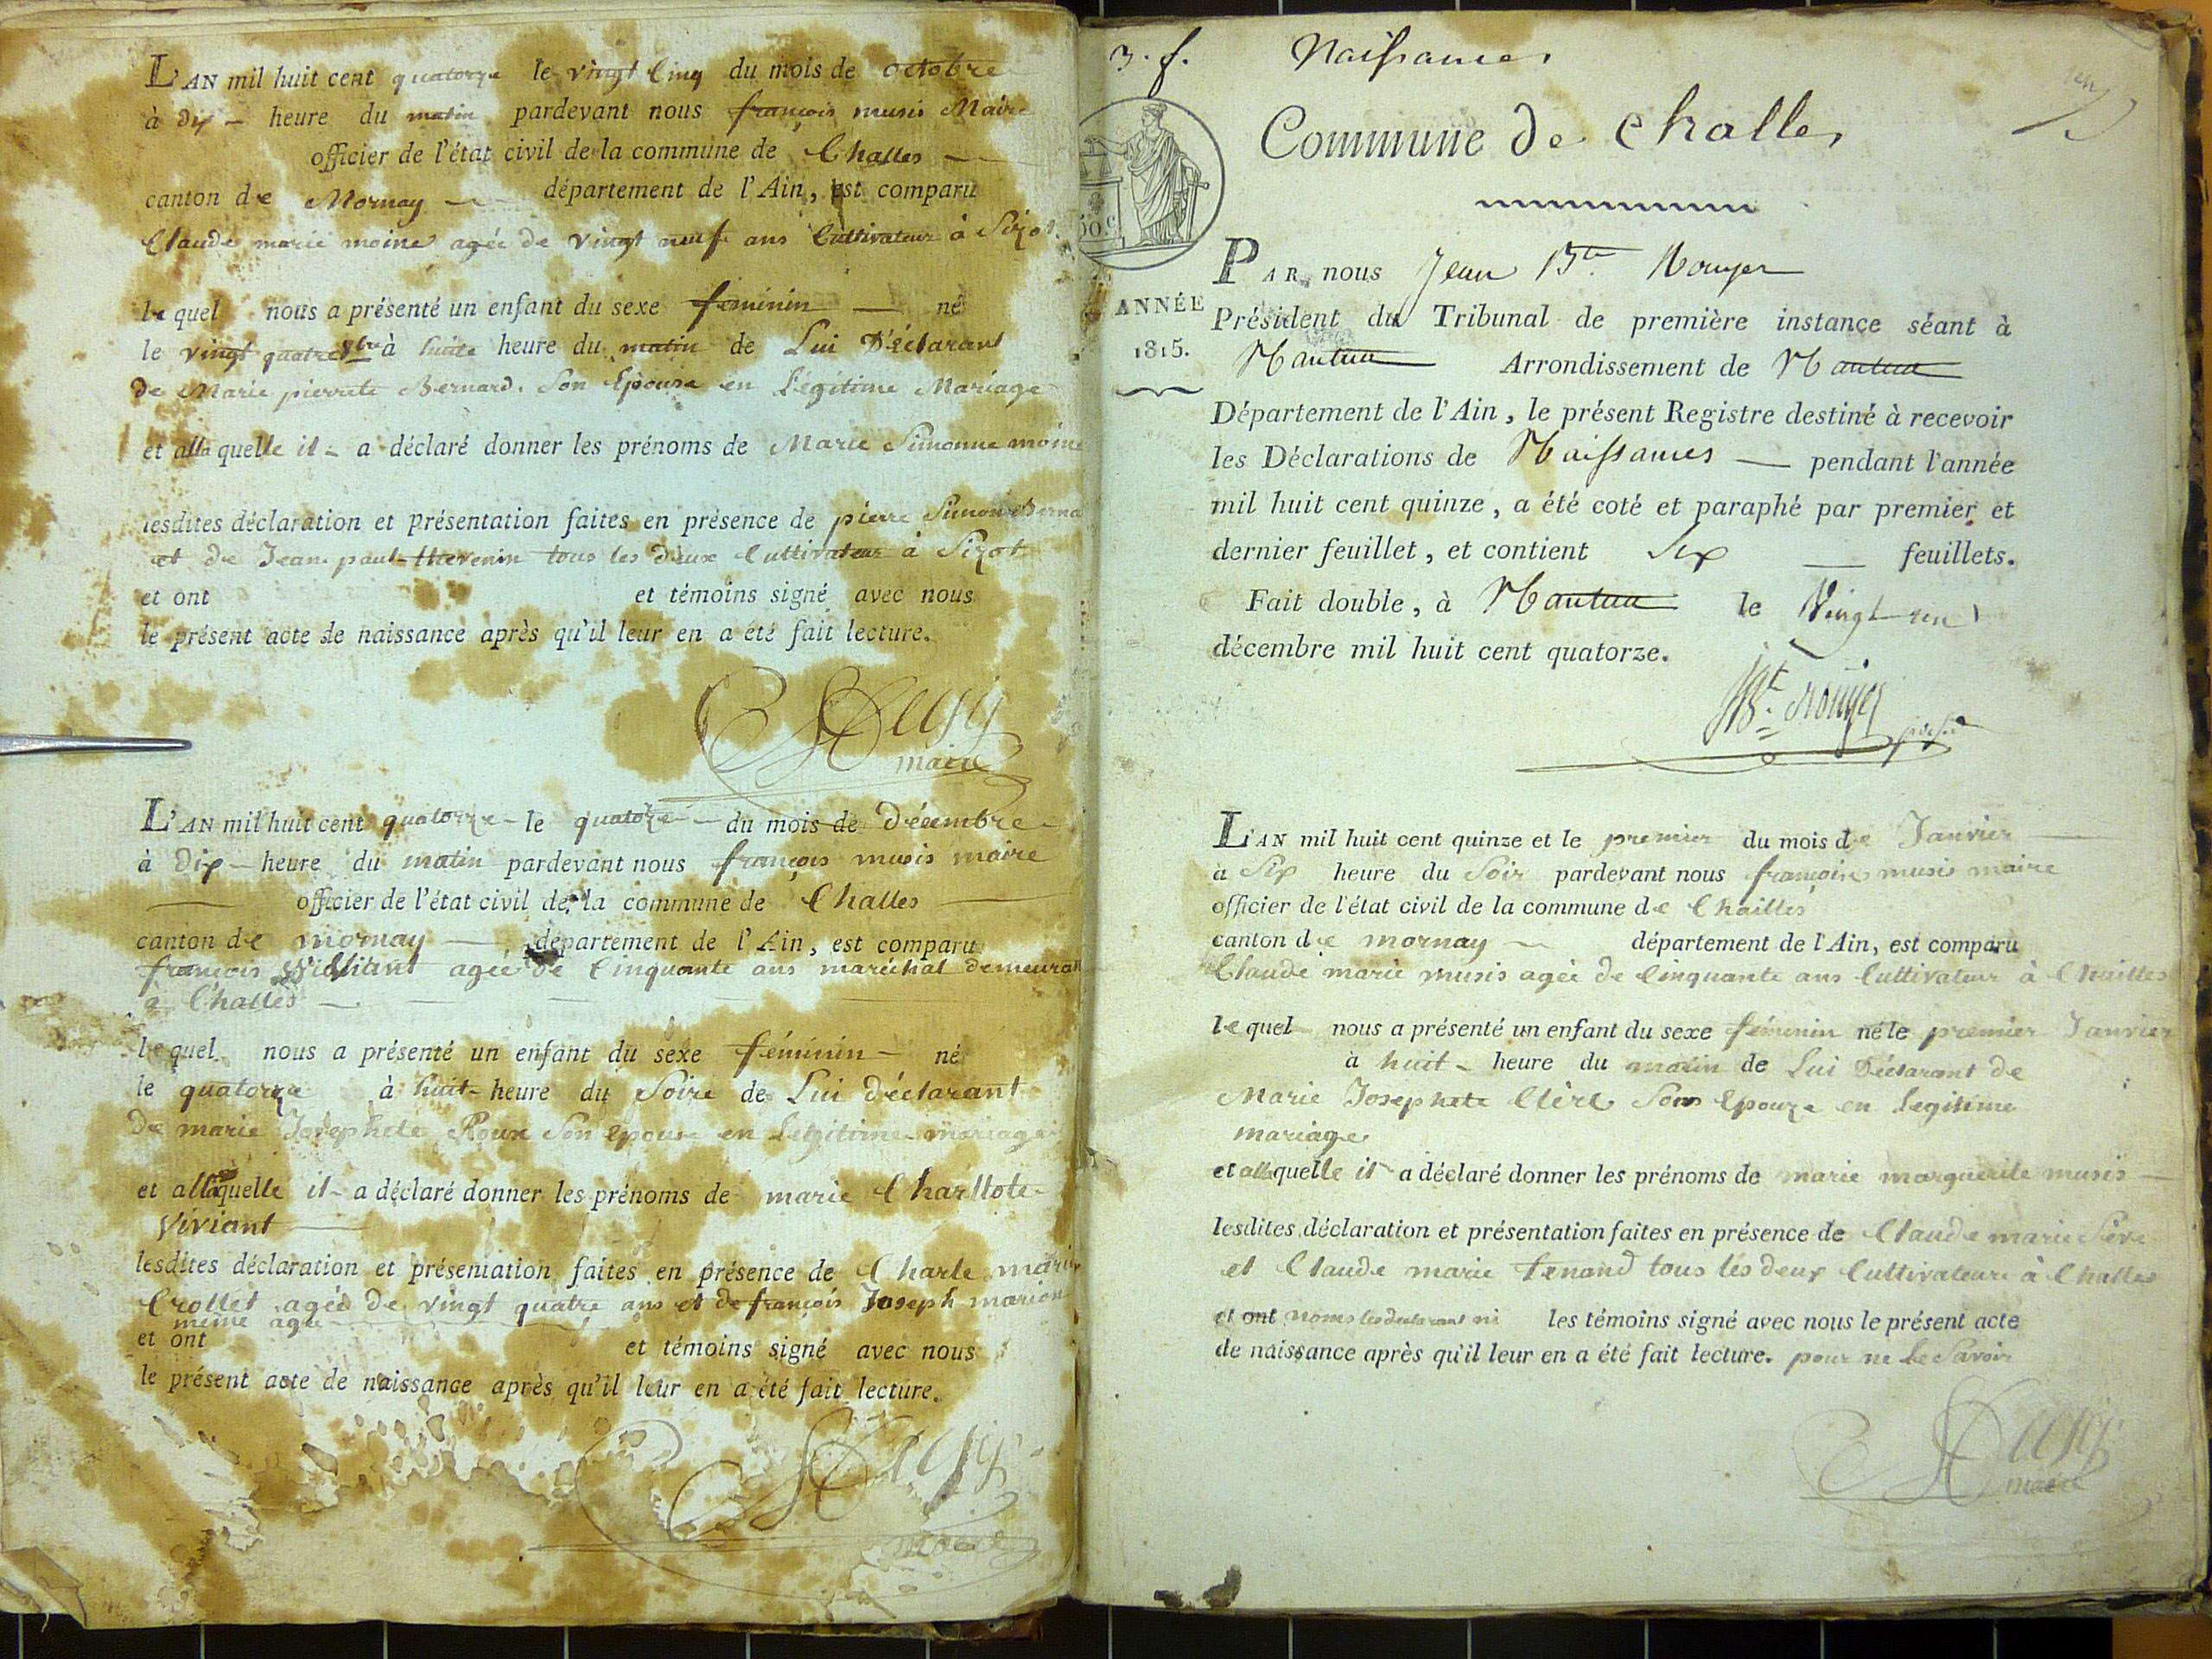 L'AN mil huit cent quatorze le vingt cinq du mois de octobre
à dix heure du matin pardevant nous françois musis Maire
officier de l'état civil de la commune de Challes
canton de Mornay département de l'Ain, est comparu
Claude marie moine agée de vingt neuf ans Cultivateur à Sizot
le quel nous a présenté un enfant du sexe feminin né
le vingt quatre à huite heure du matin de Lui Déclarant
de Marie pierrete Bernard. Son Epouse en Légitime Mariage
et alla quelle il a déclaré donner les prénoms de Marie Simonne moine
lesdites déclaration et présentation faites en présence de pierre Simon
et de Jean paul thevenin tous les deux Cultivateur à Sizot
et ont et témoins signé avec nous
le présent acte de naissance après qu'il leur en a été fait lecture.
Musy
maire
L'AN mil huit cent quatorze le quatorze du mois de Décembre
à Dix heure du matin pardevant nous françois musis maire
officier de l'état civil de la commune de Challes
canton de mornay département de l'Ain, est comparu
françois Viviant agée de Cinquante ans maréchal demeurant
à Challes
le quel nous a présenté un enfant du sexe féminin né
le quatorze à huit heure du Soire de Lui déclarant
De marie Josephete Roux Son epouse en Legitime mariage
et alla quelle il a déclaré donner les prénoms de marie Charllote
Viviant
lesdites déclaration et présentation faites en présence de Charle marie
Crollet agée de vingt quatre ans et de françois Joseph marion
meme age
et ont et témoins signé avec nous
le présent acte de naissance après qu'il leur en a été fait lecture.
Musy
maire
3. f. Naissances
Commune de Challes
50.c
ANNÉE
1815.
PAR nous Jean Bte Rouyer
Président du Tribunal de première instance séant à
Nantua Arrondissement de Nantua
Département de l'Ain, le présent Registre destiné à recevoir
les Déclarations de Naissances pendant l'année
mil huit cent quinze, a été coté et paraphé par premier et
dernier feuillet, et contient Six feuillets.
Fait double, à Nantua le Vingt un
décembre mil huit cent quatorze.
JBt. Rouyer
L'AN mil huit cent quinze et le premier du mois de Janvier
à Six heure du Soir pardevant nous françois musis maire
officier de l'état civil de la commune de Chailles
canton de mornay département de l'Ain, est comparu
Claude marie musis agée de Cinquante ans Cultivateur à Chailles
le quel nous a présenté un enfant du sexe féminin né le premier Janvier
à huit heure du matin de Lui Déclarant de
Marie Josephete Clère Son Epouze en Legitime
mariage
et alla quelle il a déclaré donner les prénoms de marie marguerite musis
lesdites déclaration et présentation faites en présence de Claude marie
et Claude marie tous les deux Cultivateur à Challes
et ont ni les témoins signé avec nous le présent acte
de naissance après qu'il leur en a été fait lecture. pour ne le Savoir
Musy
maire